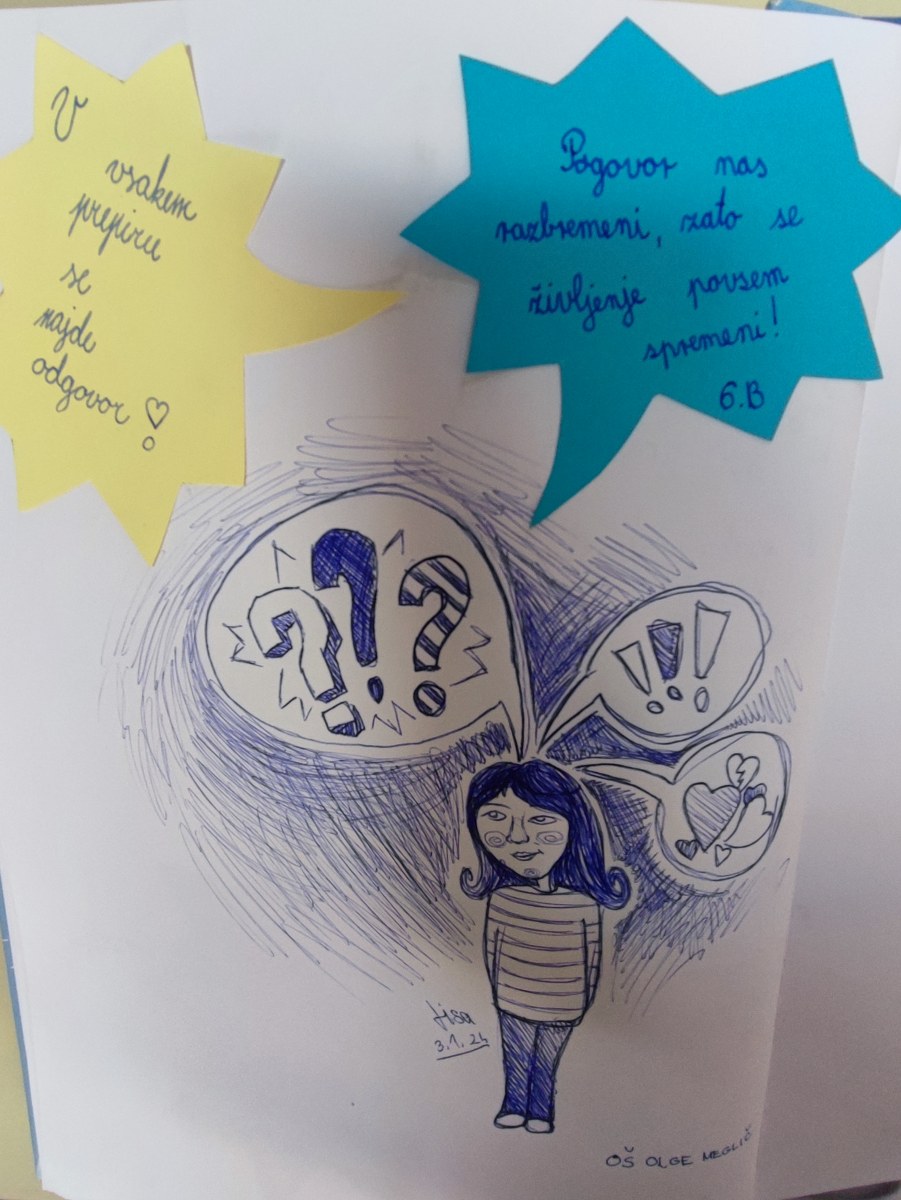 V
vsakem
prepiru
se
najde
odgovor
Pogovor nas
razbremeni, zato se
življenje povsem
spremeni!
6.B
???
!!!
Lisa
3.1.24
OŠ OLGE MEGLIČ